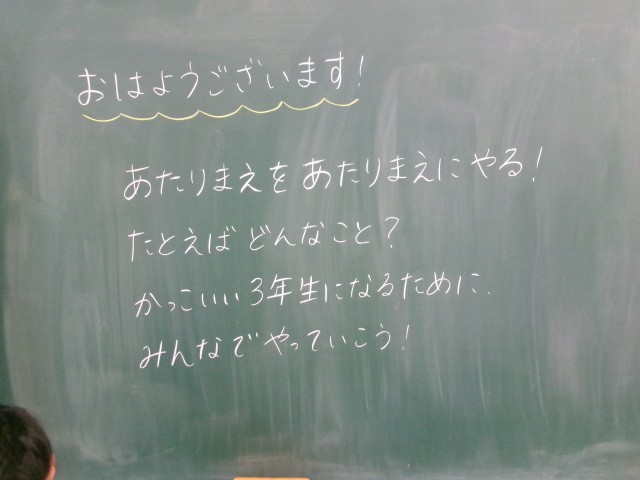 おはようございます!
あたりまえを あたりまえに やる!
たとえば どんなこと?
かっこいい 3年生になるために.
みんなで やっていこう!